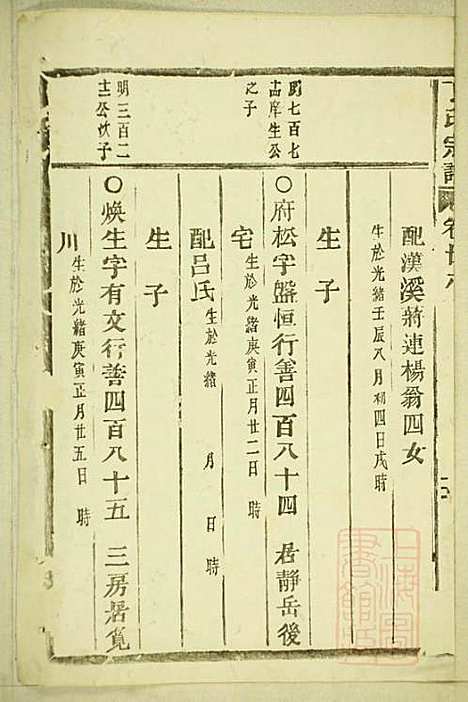 氏宗譜
卷廿六
配漢溪蔣連楊翁四女
生於光緒壬辰八月初四日戌時
生子
七百七
十庠生公
之子
○府松字盤恒行善四百八十四 居靜岳後
宅生於光緒庚寅正月廿二日 時
配呂氏生於光緒 月 日 時
生子
明三百二
十二公次子
○煥生字有文行善四百八十五 三房居覓
川生於光緒庚寅正月廿五日 時